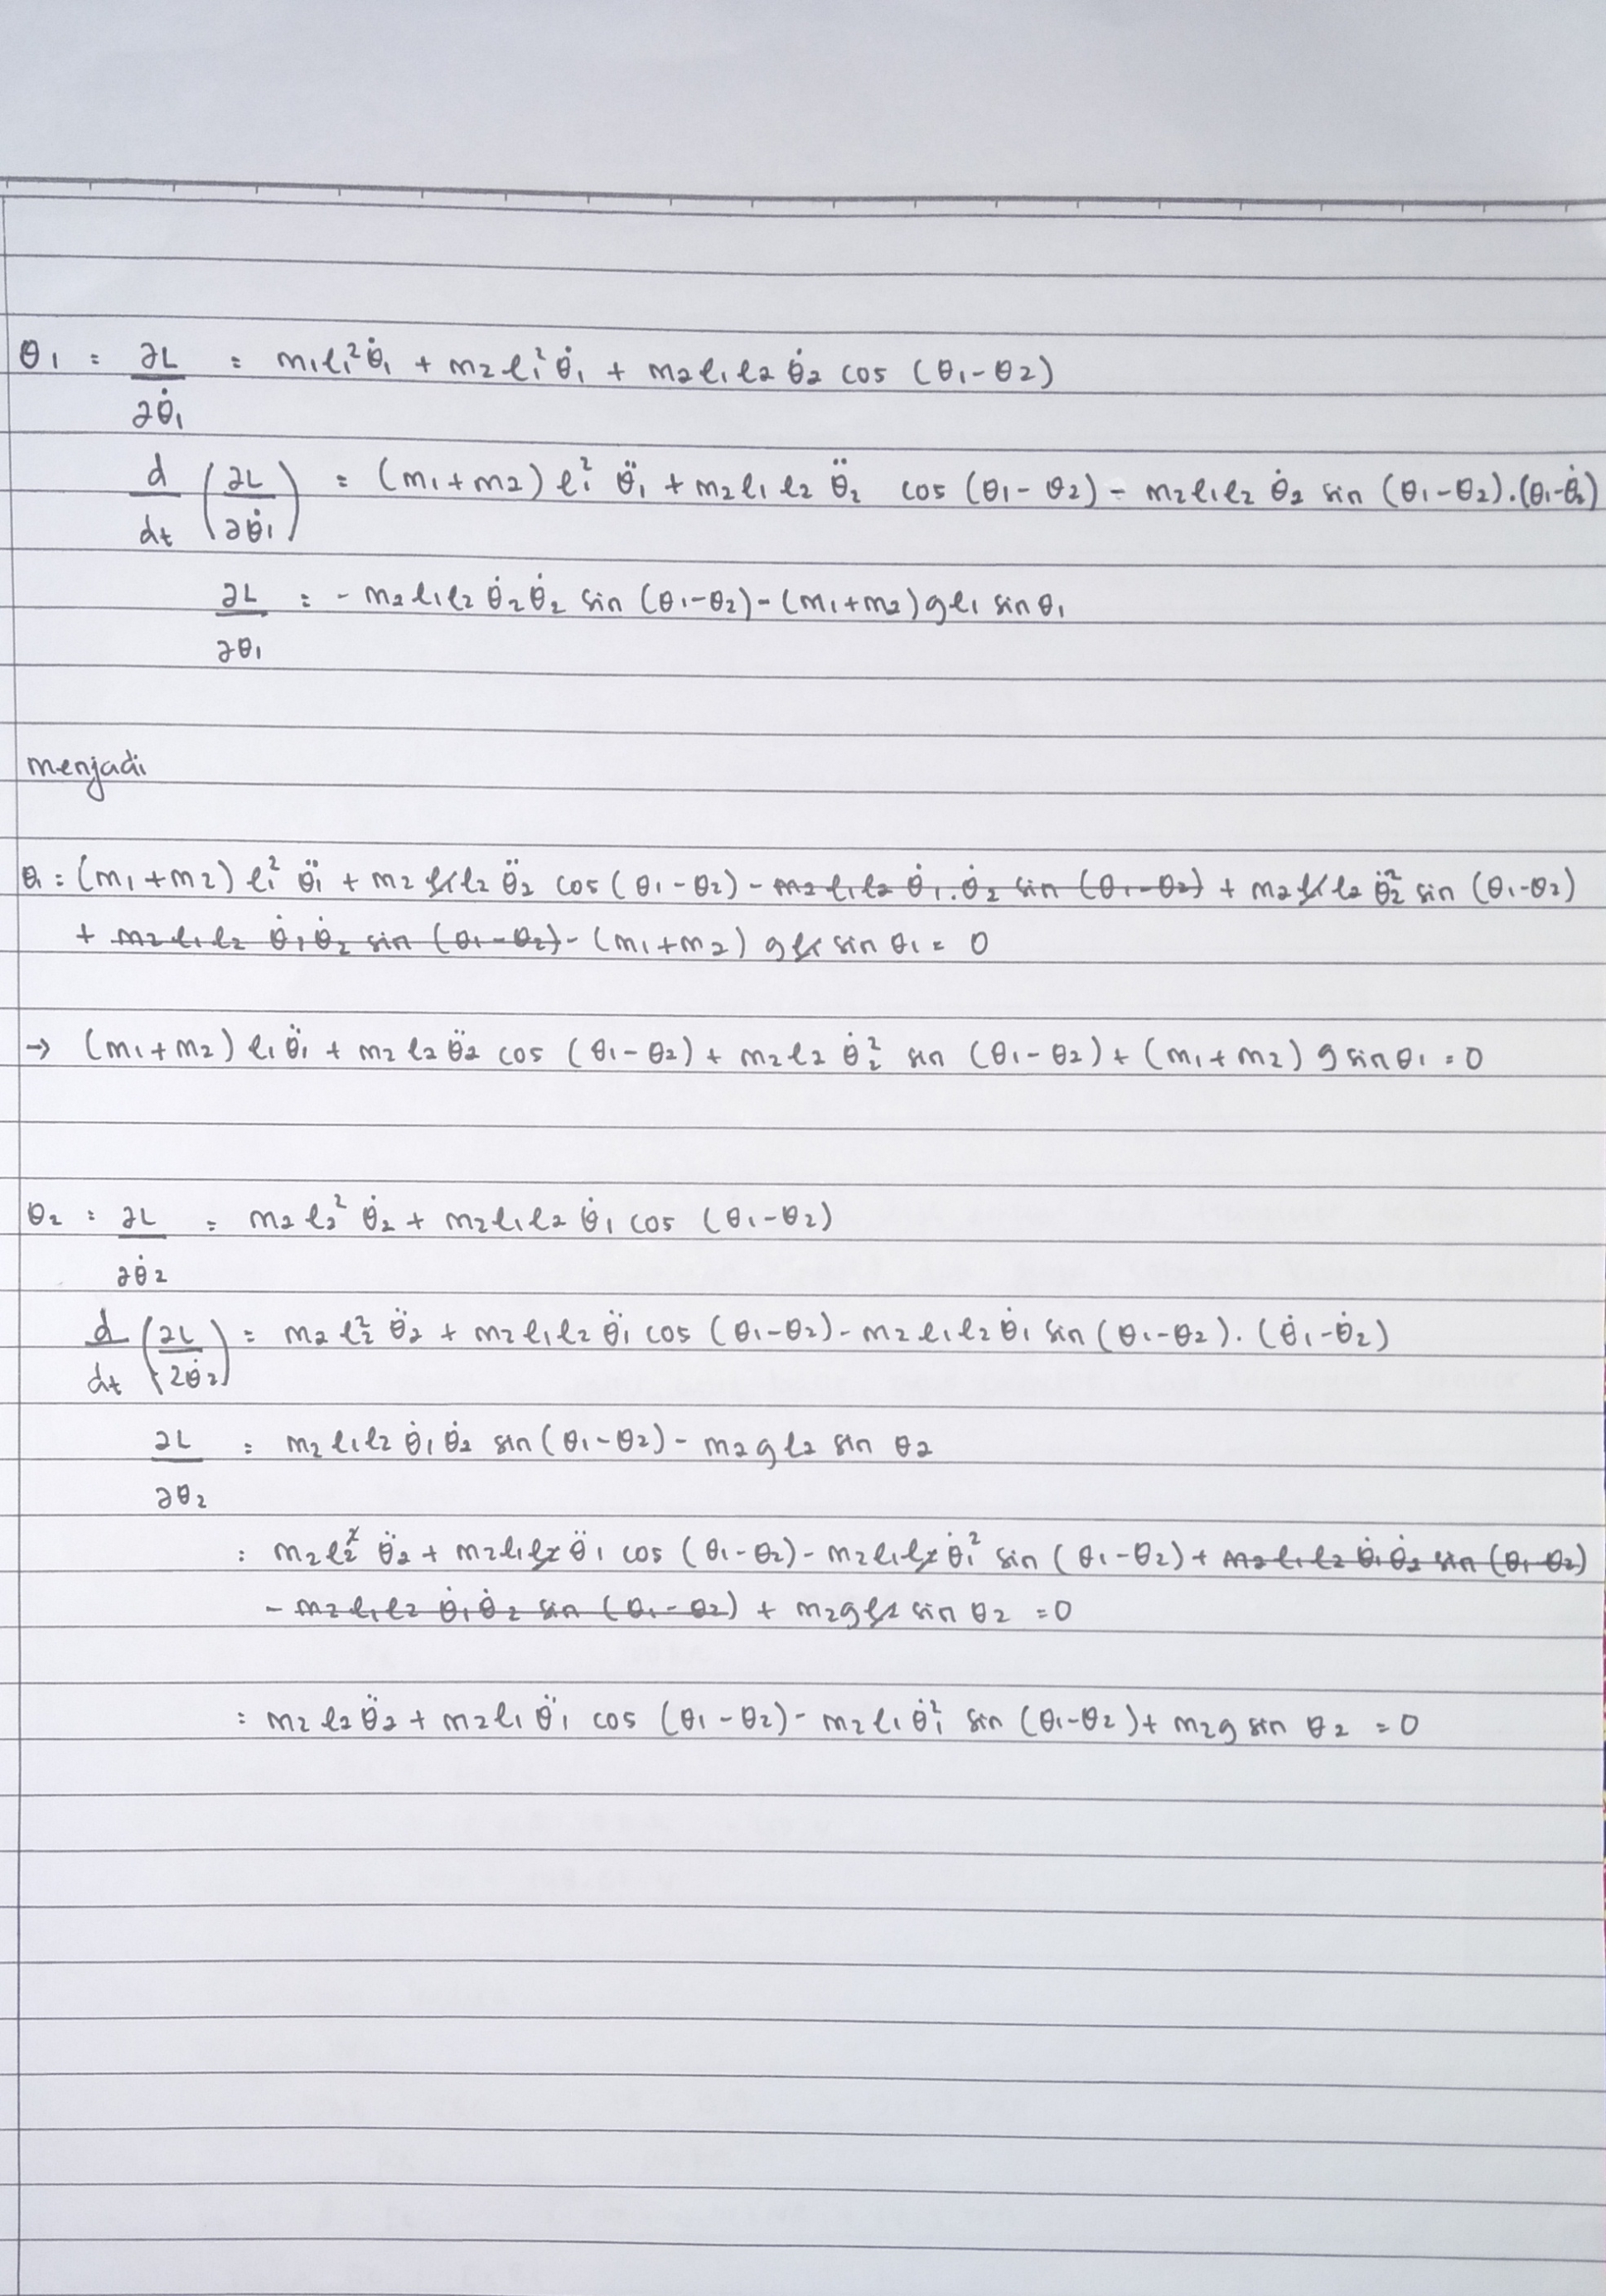 θ1 = ∂L/∂θ̇1 = m1l1²θ̇1 + m2l1²θ̇1 + m2l1l2θ̇2 cos (θ1-θ2)
d/dt (∂L/∂θ̇1) = (m1+m2) l1² θ̈1 + m2l1l2 θ̈2 cos (θ1-θ2) - m2l1l2 θ̇2 sin (θ1-θ2).(θ̇1-θ̇2)
∂L/∂θ1 = - m2l1l2 θ̇2θ̇2 sin (θ1-θ2) - (m1+m2) gl1 sin θ1
menjadi
θ1 = (m1+m2) l1² θ̈1 + m2 l1l2 θ̈2 cos (θ1-θ2) - m2 l1l2 θ̇1.θ̇2 sin (θ1-θ2) + m2 l1l2 θ̇2² sin (θ1-θ2)
+ m2 l1l2 θ̇1θ̇2 sin (θ1-θ2) - (m1+m2) gl1 sin θ1 = 0
→ (m1+m2) l1θ̈1 + m2 l2θ̈2 cos (θ1-θ2) + m2 l2 θ̇2² sin (θ1-θ2) + (m1+m2) g sin θ1 = 0
θ2 = ∂L/∂θ̇2 = m2 l2² θ̇2 + m2l1l2 θ̇1 cos (θ1-θ2)
d/dt (∂L/∂θ̇2) = m2 l2² θ̈2 + m2l1l2 θ̈1 cos (θ1-θ2) - m2l1l2 θ̇1 sin (θ1-θ2). (θ̇1-θ̇2)
∂L/∂θ2 = m2 l1l2 θ̇1θ̇2 sin (θ1-θ2) - m2gl2 sin θ2
= m2l2² θ̈2 + m2l1l2θ̈1 cos (θ1-θ2) - m2l1l2θ̇1² sin (θ1-θ2) + m2l1l2 θ̇1θ̇2 sin (θ1-θ2)
- m2l1l2 θ̇1θ̇2 sin (θ1-θ2) + m2gl2 sin θ2 = 0
= m2 l2θ̈2 + m2l1 θ̈1 cos (θ1-θ2) - m2l1θ̇1² sin (θ1-θ2) + m2g sin θ2 = 0